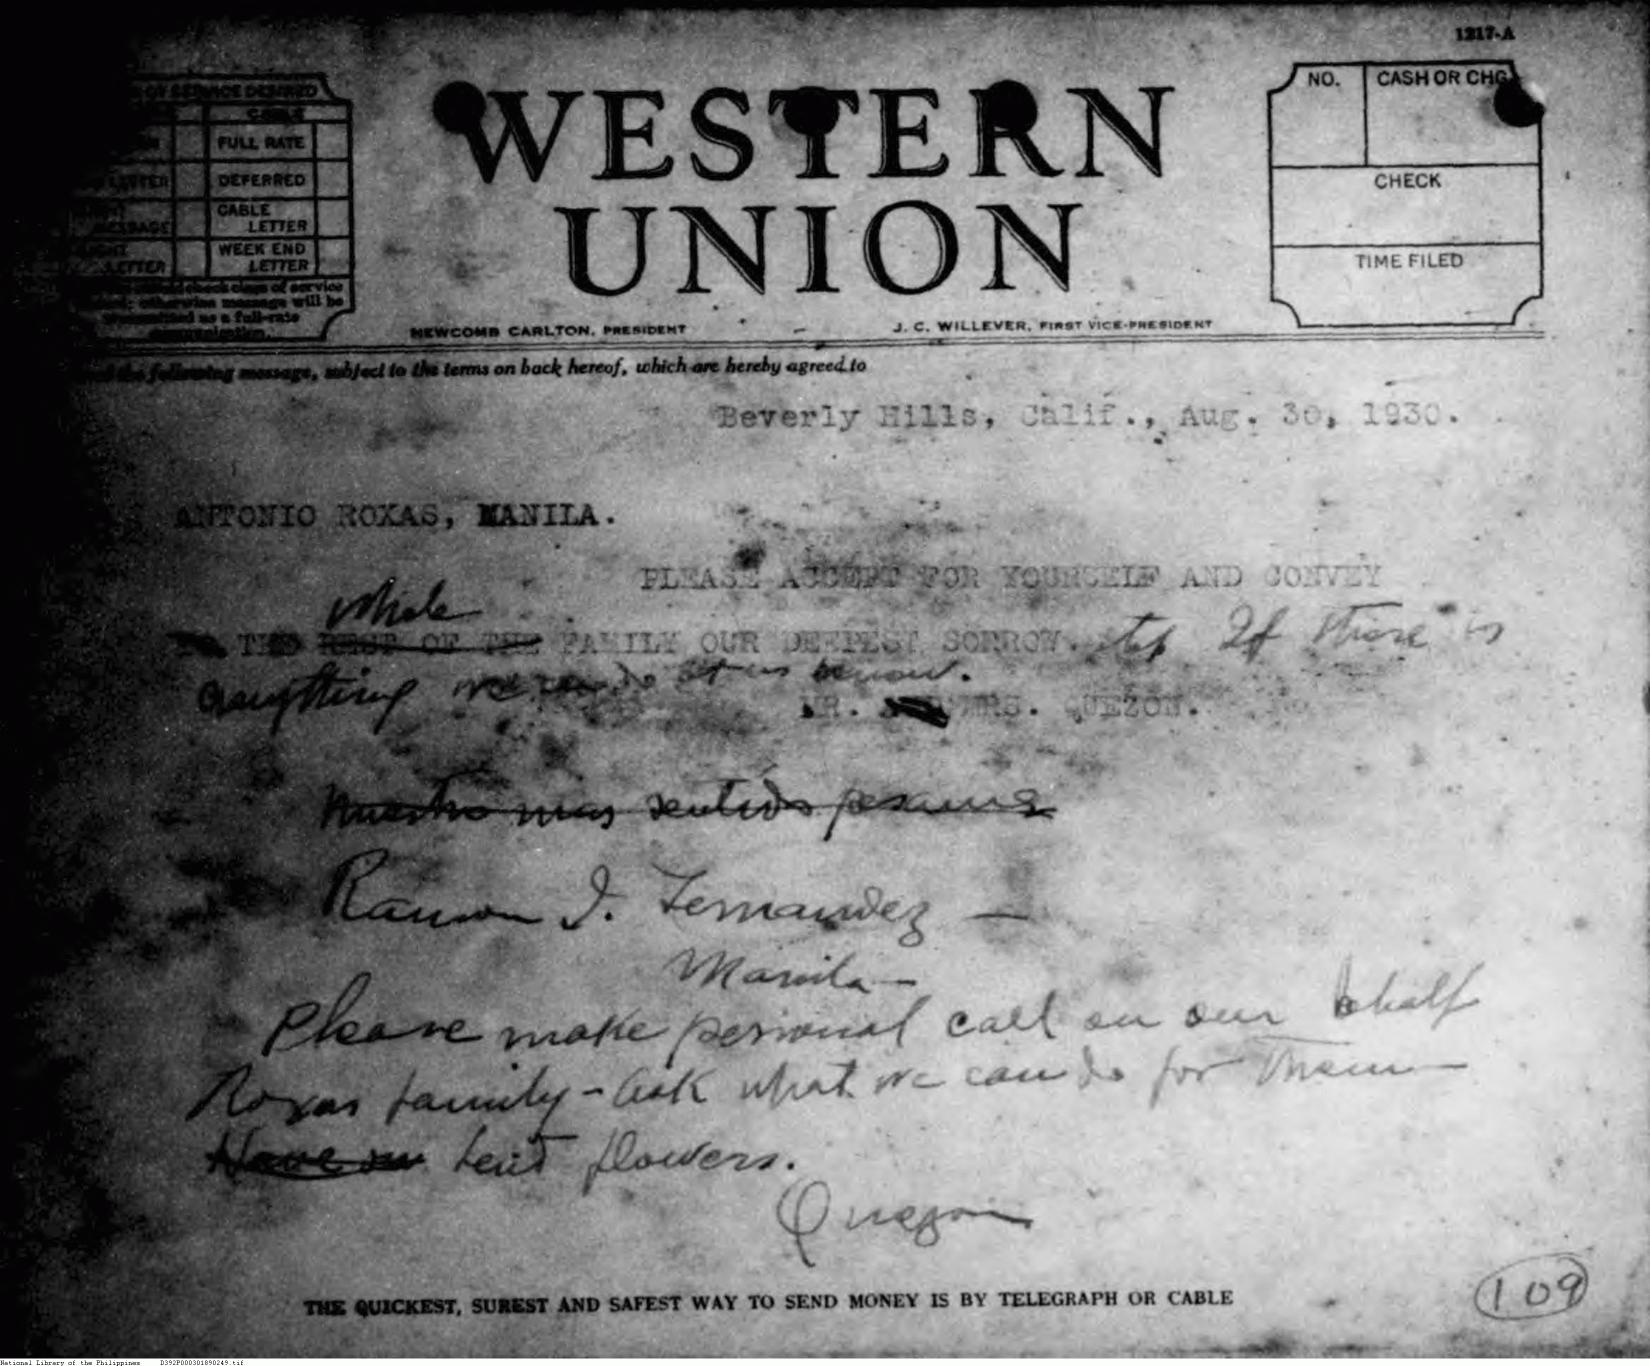 1217-A
OF SERVICE DESIRED
CABLE
FULL RATE
LETTER DEFERRED
MESSAGE CABLE LETTER
LETTER WEEK END LETTER
check class of service
otherwise message will be
transmitted as a full-rate
communication.
WESTERN
UNION
NO. CASH OR CHG
CHECK
TIME FILED
NEWCOMB CARLTON, PRESIDENT J. C. WILLEVER, FIRST VICE-PRESIDENT
the following message, subject to the terms on back hereof, which are hereby agreed to
Beverly Hills, Calif., Aug. 30, 1930.
ANTONIO ROXAS, MANILA.
PLEASE ACCEPT FOR YOURSELF AND CONVEY
whole
THE REST OF THE FAMILY OUR DEEPEST SORROW. If there is
anything we can do let us know.
MR. MRS. QUEZON.
Nuestro mas sentido pesame
Ramon J. Fernandez —
Manila —
Please make personal call on our behalf
Roxas family - Ask what we can do for them —
Have sent flowers.
Quezon
THE QUICKEST, SUREST AND SAFEST WAY TO SEND MONEY IS BY TELEGRAPH OR CABLE
109
National Library of the Philippines D392P000301890249.tif